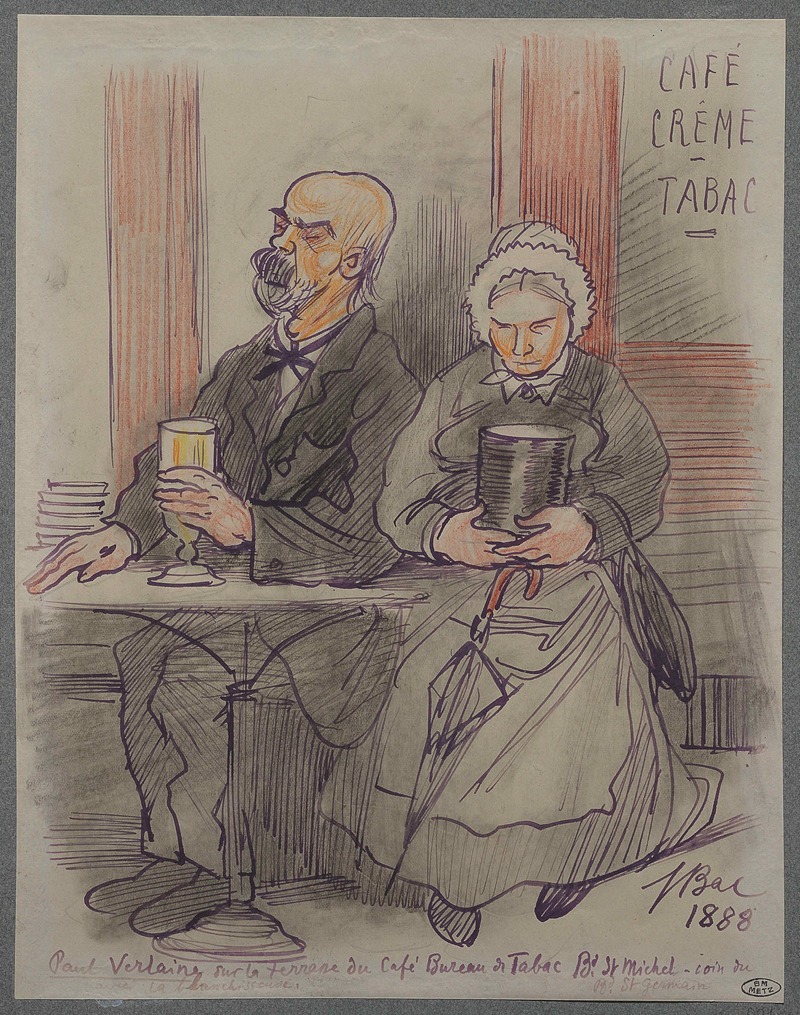 CAFÉ
CRÊME
-
TABAC
JBac
1888
Paul Verlaine, sur la terrasse du Café Bureau de Tabac Bd St Michel - coin du
la blanchisseuse. Bd St Germain
BM
METZ